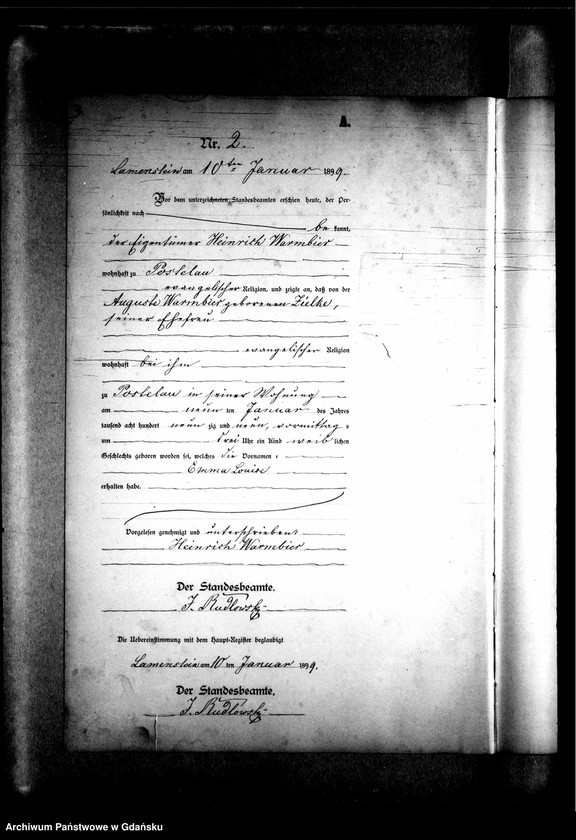 A.
Nr. 2.
Lamenstein am 10ten Januar 1899.
Vor dem unterzeichneten Standesbeamten erschien heute, der Per-
sönlichkeit nach
bekannt,
der Eigentümer Heinrich Warmbier
wohnhaft zu Postelau
evangelischer Religion, und zeigte an, daß von der
Auguste Warmbier geborenen Zielke,
seiner Ehefrau
evangelischer Religion
wohnhaft bei ihm
zu Postelau in seiner Wohnung
am neun ten Januar des Jahres
tausend acht hundert neun zig und neun, vormittag s
um drei Uhr ein Kind weib lichen
Geschlechts geboren worden sei, welches die Vornamen:
Emma Louise
erhalten habe.
Vorgelesen genehmigt und unterschrieben:
Heinrich Warmbier
Der Standesbeamte.
J. Rudlowsky
Die Uebereinstimmung mit dem Haupt-Register beglaubigt
Lamenstein am 10 ten Januar 1899.
Der Standesbeamte.
J. Rudlowsky
Archiwum Państwowe w Gdańsku